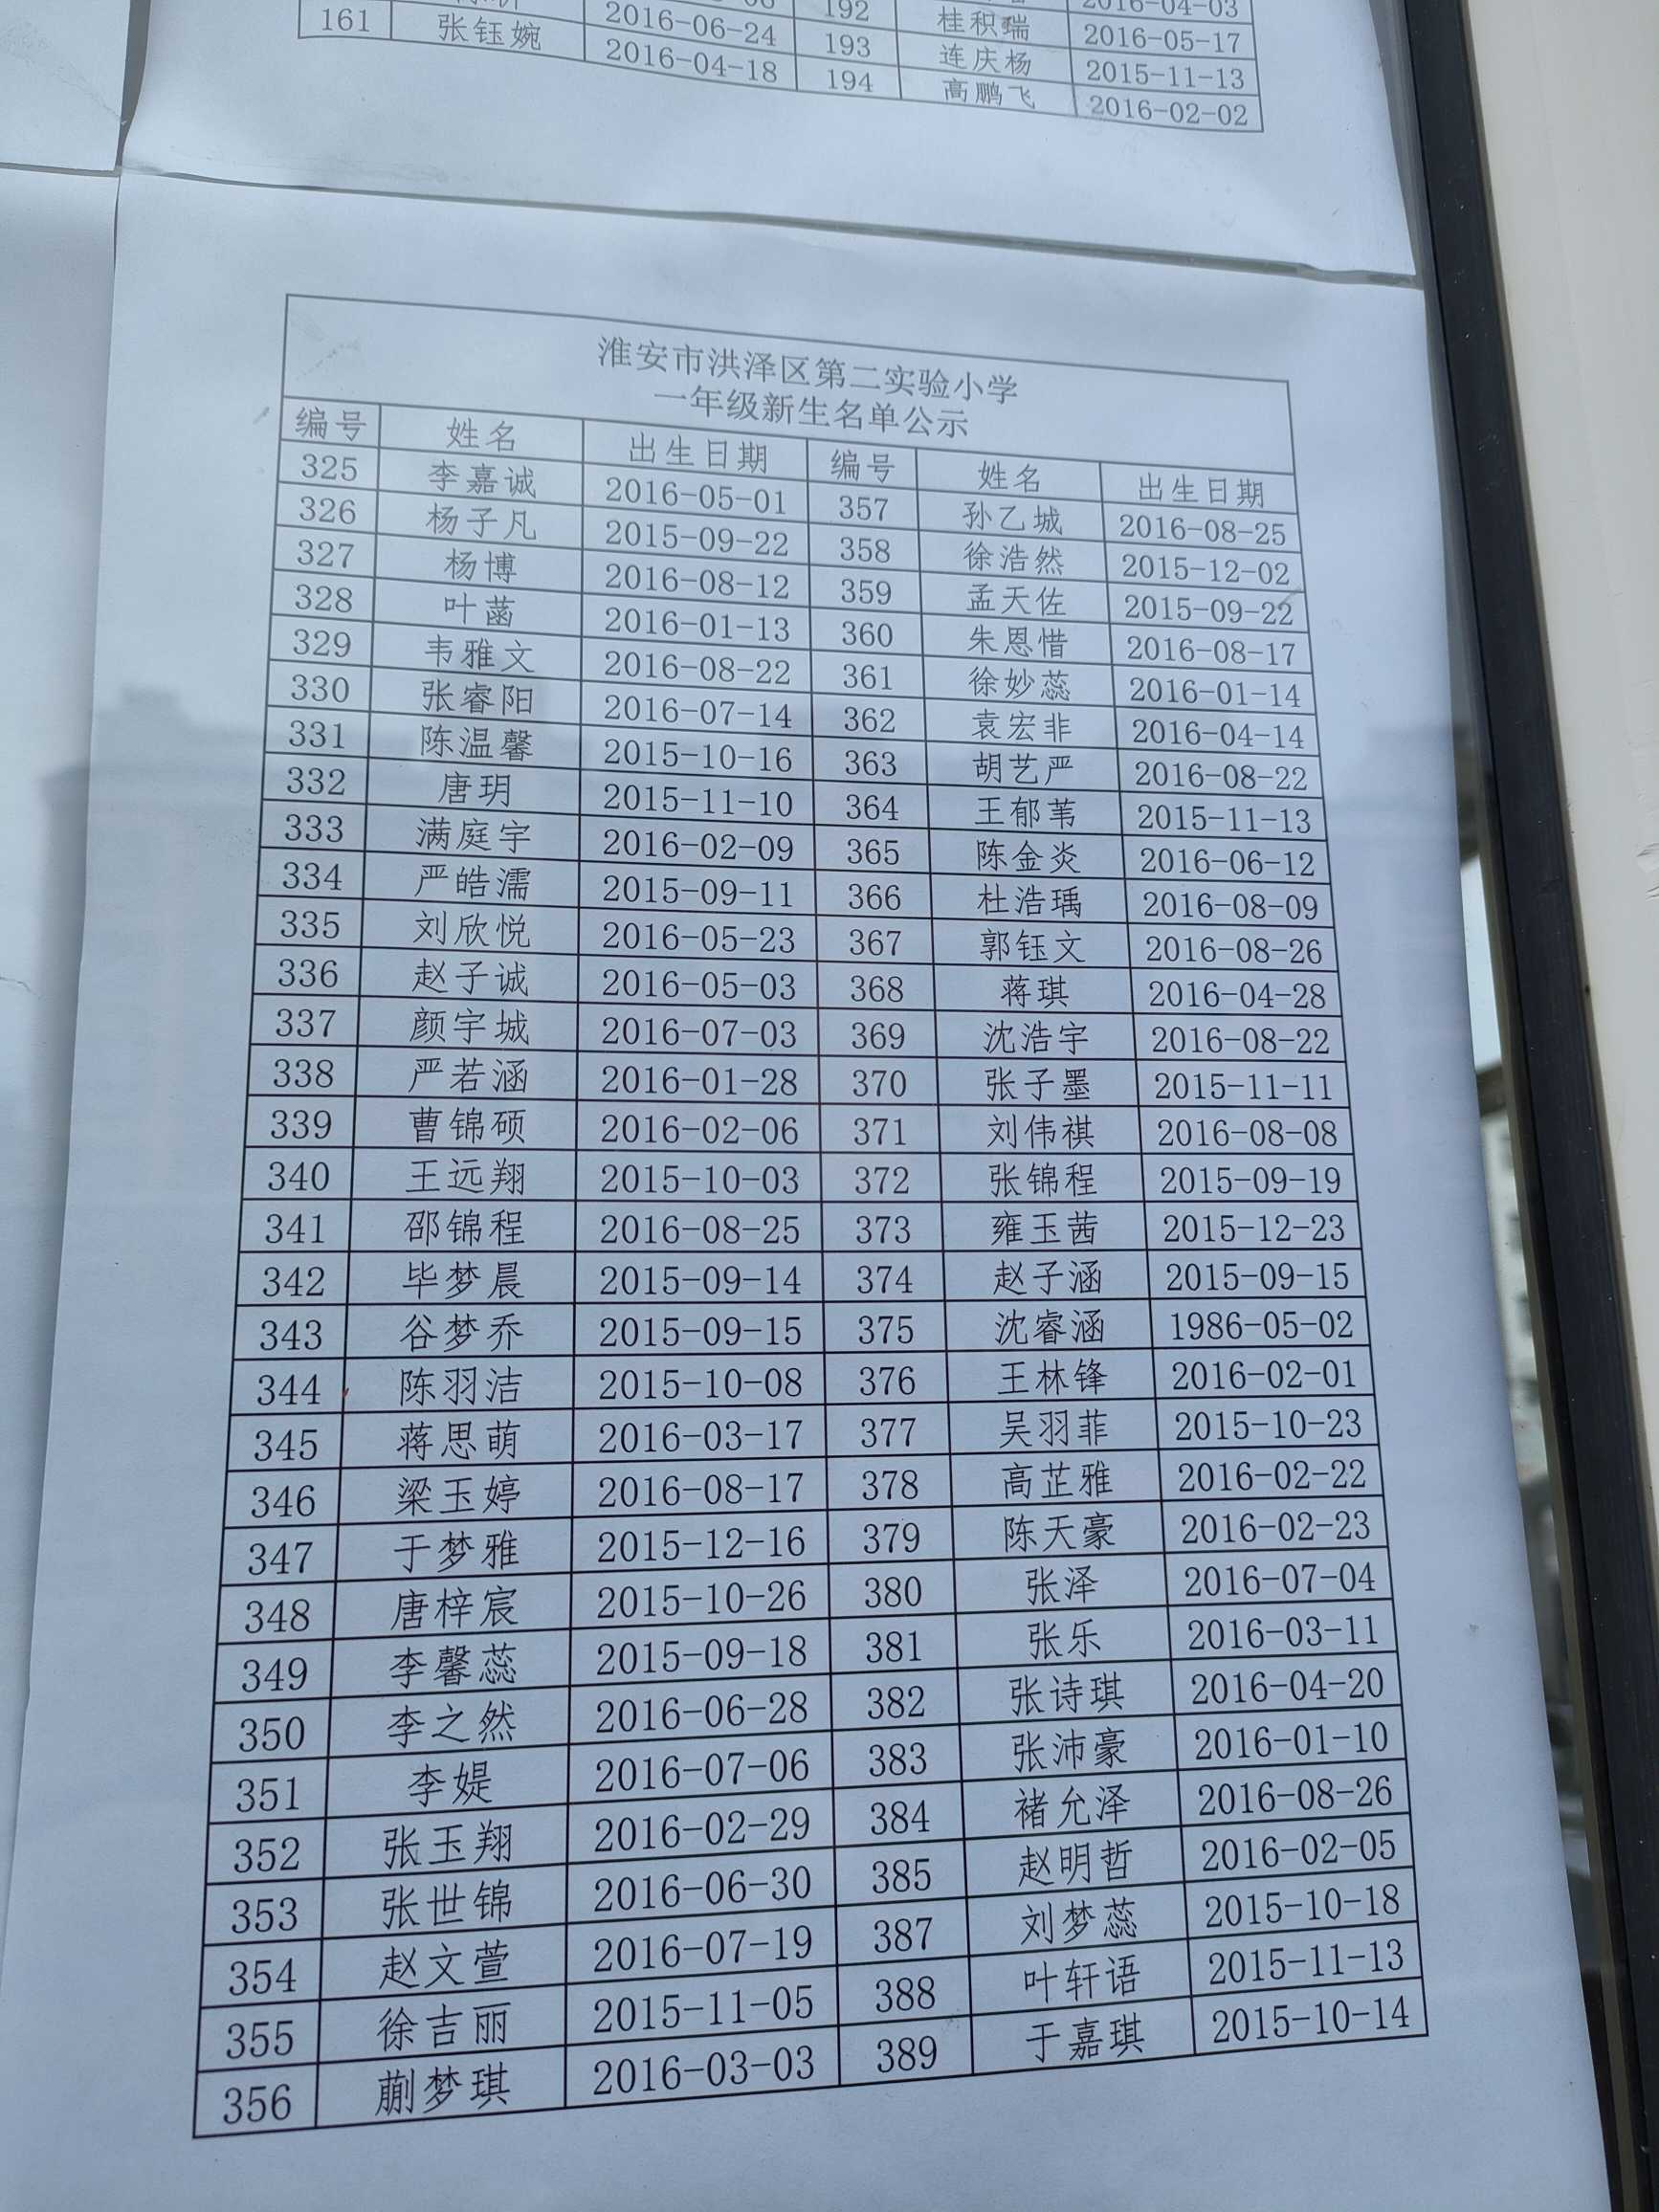 2016-04-03
192 桂积瑞 2016-05-17
161 张钰婉 2016-06-24 193 连庆杨 2015-11-13
2016-04-18 194 高鹏飞 2016-02-02
淮安市洪泽区第二实验小学
一年级新生名单公示
编号 姓名 出生日期 编号 姓名 出生日期
325 李嘉诚 2016-05-01 357 孙乙城 2016-08-25
326 杨子凡 2015-09-22 358 徐浩然 2015-12-02
327 杨博 2016-08-12 359 孟天佐 2015-09-22
328 叶菡 2016-01-13 360 朱恩惜 2016-08-17
329 韦雅文 2016-08-22 361 徐妙蕊 2016-01-14
330 张睿阳 2016-07-14 362 袁宏非 2016-04-14
331 陈温馨 2015-10-16 363 胡艺严 2016-08-22
332 唐玥 2015-11-10 364 王郁苇 2015-11-13
333 满庭宇 2016-02-09 365 陈金炎 2016-06-12
334 严皓濡 2015-09-11 366 杜浩瑀 2016-08-09
335 刘欣悦 2016-05-23 367 郭钰文 2016-08-26
336 赵子诚 2016-05-03 368 蒋琪 2016-04-28
337 颜宇城 2016-07-03 369 沈浩宇 2016-08-22
338 严若涵 2016-01-28 370 张子墨 2015-11-11
339 曹锦硕 2016-02-06 371 刘伟祺 2016-08-08
340 王远翔 2015-10-03 372 张锦程 2015-09-19
341 邵锦程 2016-08-25 373 雍玉茜 2015-12-23
342 毕梦晨 2015-09-14 374 赵子涵 2015-09-15
343 谷梦乔 2015-09-15 375 沈睿涵 1986-05-02
344 陈羽洁 2015-10-08 376 王林锋 2016-02-01
345 蒋思萌 2016-03-17 377 吴羽菲 2015-10-23
346 梁玉婷 2016-08-17 378 高芷雅 2016-02-22
347 于梦雅 2015-12-16 379 陈天豪 2016-02-23
348 唐梓宸 2015-10-26 380 张泽 2016-07-04
349 李馨蕊 2015-09-18 381 张乐 2016-03-11
350 李之然 2016-06-28 382 张诗琪 2016-04-20
351 李媞 2016-07-06 383 张沛豪 2016-01-10
352 张玉翔 2016-02-29 384 褚允泽 2016-08-26
353 张世锦 2016-06-30 385 赵明哲 2016-02-05
354 赵文萱 2016-07-19 387 刘梦蕊 2015-10-18
355 徐吉丽 2015-11-05 388 叶轩语 2015-11-13
356 蒯梦琪 2016-03-03 389 于嘉琪 2015-10-14